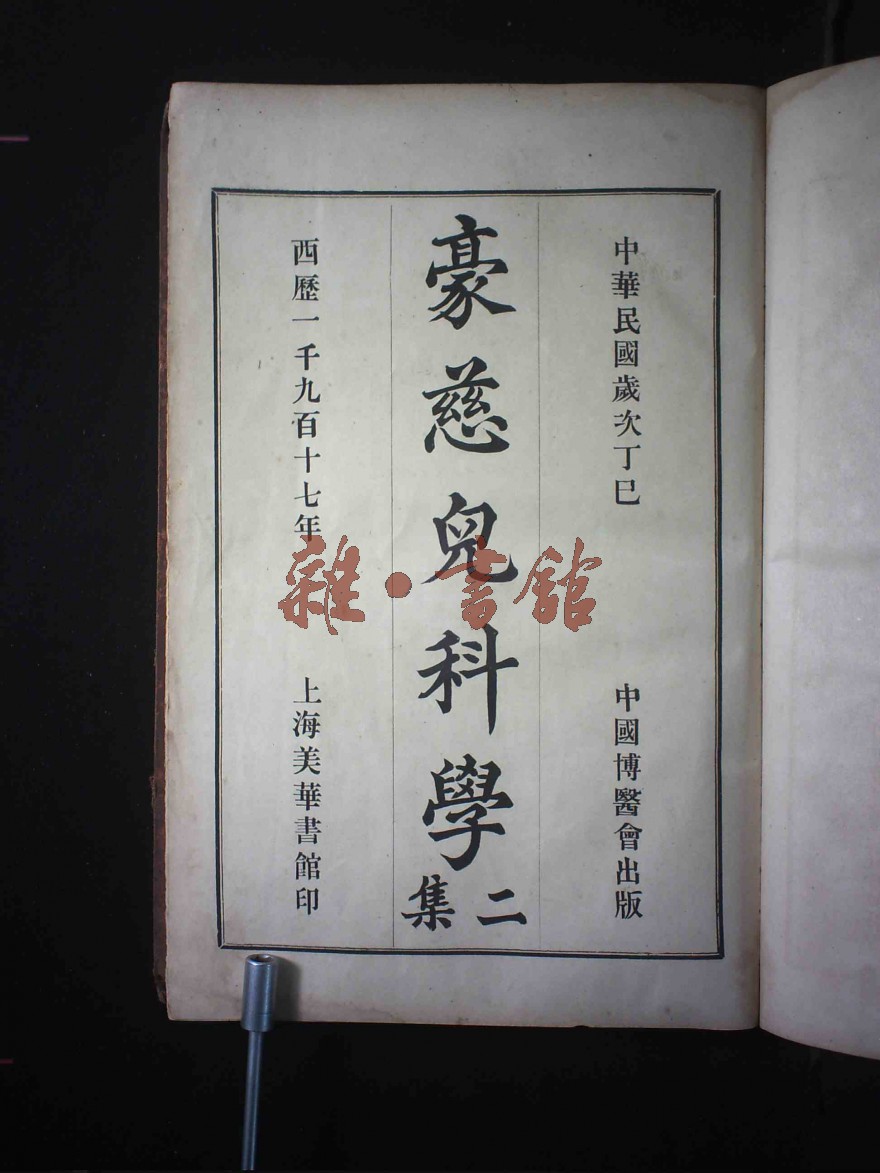 中華民國歲次丁巳
中國博醫會出版
豪慈兒科學
二集
西歷一千九百十七年
上海美華書館印
雜·書館